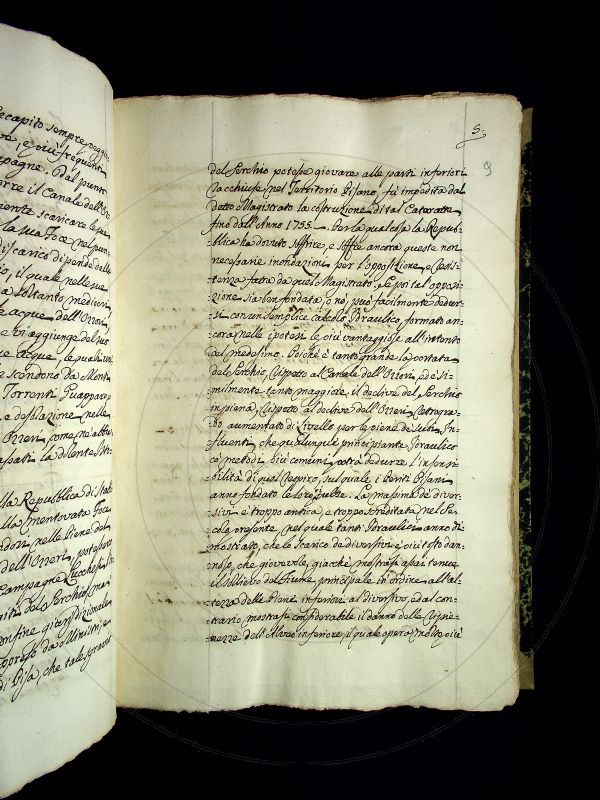 ecapito sempre peggio-
ve, e più frequenti
mpagne. Dal punto
orre il Canale dell'O-
mente scaricare le pie
la sua Foce nel pun-
di scarico dipende dalla
io, il quale nelle sue
ha soltanto mediocri
le acque dell'Ozzeri,
e vi aggiunge del suo
ue acque, le quali
e scendono da Monti
Torrenti Guapparo
e desolazione nelle
Ozzeri, come ne abbia-
assati la dilente
alla Repubblica di
alla mentovata Foce
ndosi nelle Piene del
dell'Ozzeri, potessero
Campagne Lucchesi
del Serchio, ma
onfine giurisdizionale
oppresso da Ministri
di Pisa, che tale
5.
9
del Serchio potesse giovare alle parti inferiori
racchiuse nel Territorio Pisano, fù impedita dal
detto Magistrato la costruzione di tal Cateratta
fino dall'Anno 1755. Per la qual cosa la Repub-
blica hà dovuto soffrire, e soffre ancora queste non
necessarie inondazioni per l'opposizione, e resis-
tenza fatta da quel Magistrato, e se poi tal opposi-
zione sia ben fondata, o nò, può facilmente dedur-
si con un semplice calcolo Idraulico, formato an-
cora nelle ipotesi le più vantaggiose all'intento
del medesimo. Poichè è tanto grande la portata
del Serchio, rispetto al Canale dell'Ozzeri, ed è si-
milmente tanto maggiore il declive del Serchio
in piena, rispetto al declive dell'Ozzeri retrogra-
do aumentato di livello per le piene de suoi In-
fluenti, che qualunque principiante Idraulico
co' metodi più comuni potrà dedurre l'insensi-
bilità di quel respiro, sul quale i Periti Pisani
anno fondato le loro repulse. La massima de' diver-
sivi è troppo antica, e troppo screditata nel Se-
colo presente, nel quale tanti Idraulici anno di-
mostrato, che lo scarico de diversivi è più tosto dan-
noso, che giovevole, giacchè mostrasi assai tenue
il sollievo del Fiume principale in ordine all'al-
tezza delle Piene inferiori al diversivo, ed al con-
trario mostrasi considerabile il danno delle ripie-
nezze dell'Alveo inferiore, il quale opera molto più